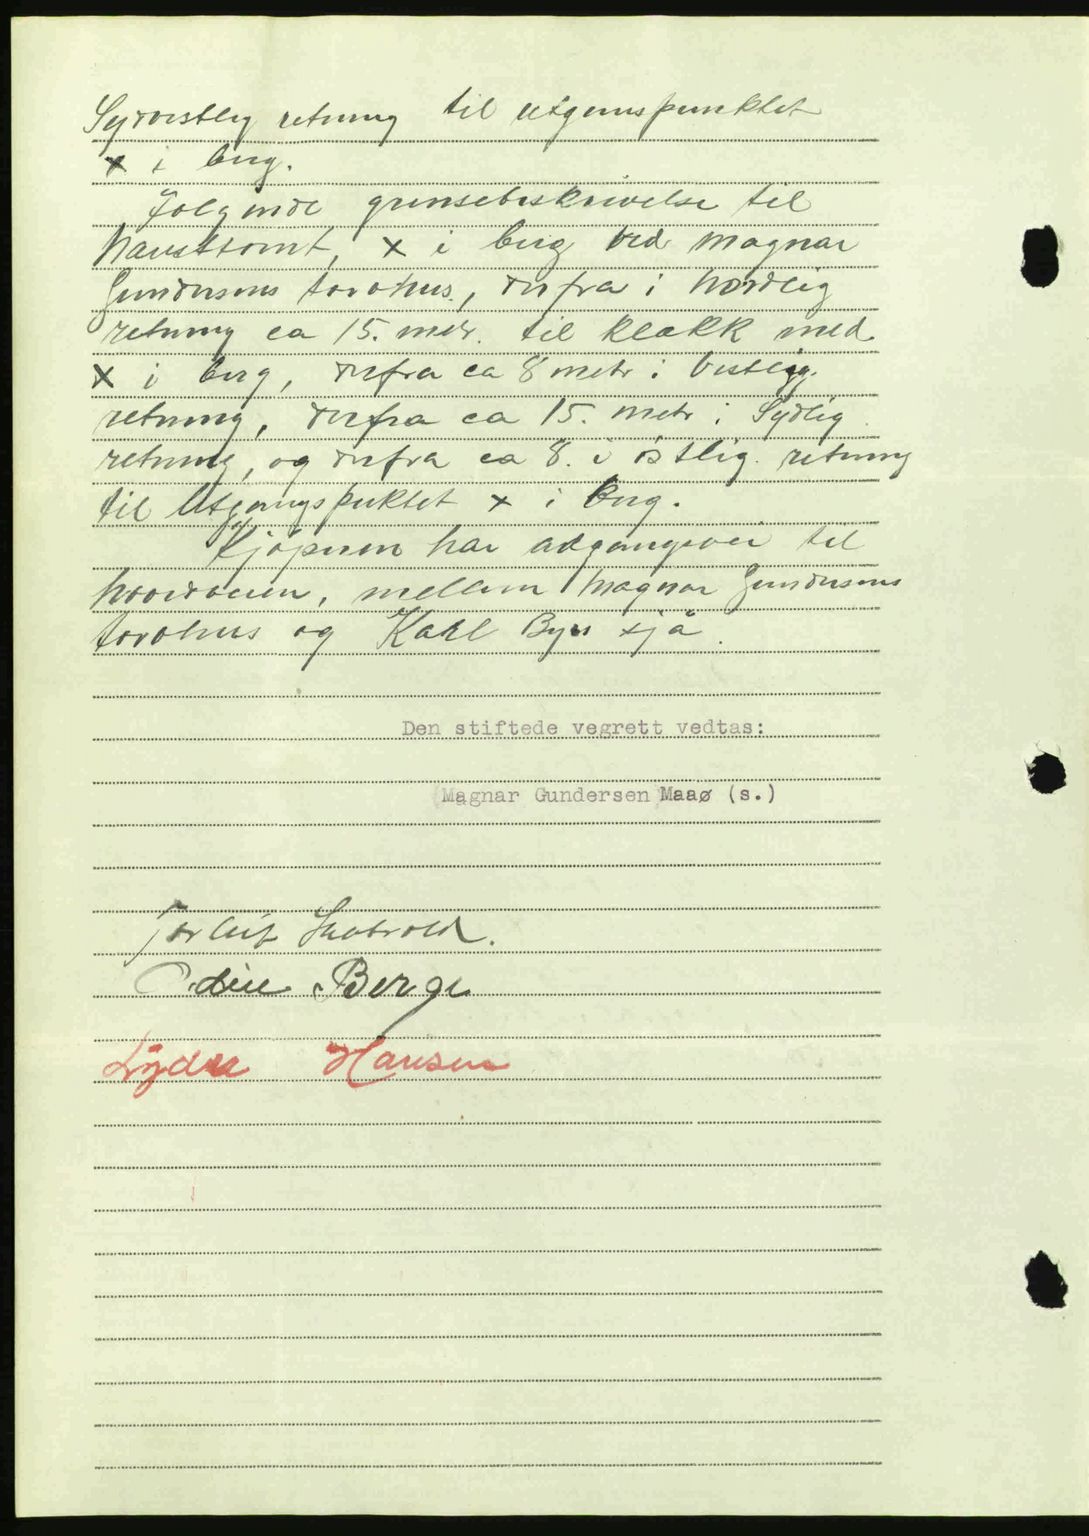 Sydvestlig retning til utgangspunktet
x i berg.
Følgende grensebeskrivelse til
Nausttomt, x i berg ved Magnar
Gundersens torvhus, derfra i Nordlig
retning ca 15. metr. til klakk med
x i berg, derfra ca 8 metr i Vestlig
retning, derfra ca 15. metr i Sydlig
retning, og derfra ca 8. i østlig retning
til Utgangspuktet x i berg.
Kjøperen har adgangsvei til
hovedveien, mellem Magnar Gundersens
torvhus og Karl Byes sjå.
Den stiftede vegrett vedtas:
(Magnar Gundersen Maaø (s.)
Torleif
Odin Berge
Lydia Hansen